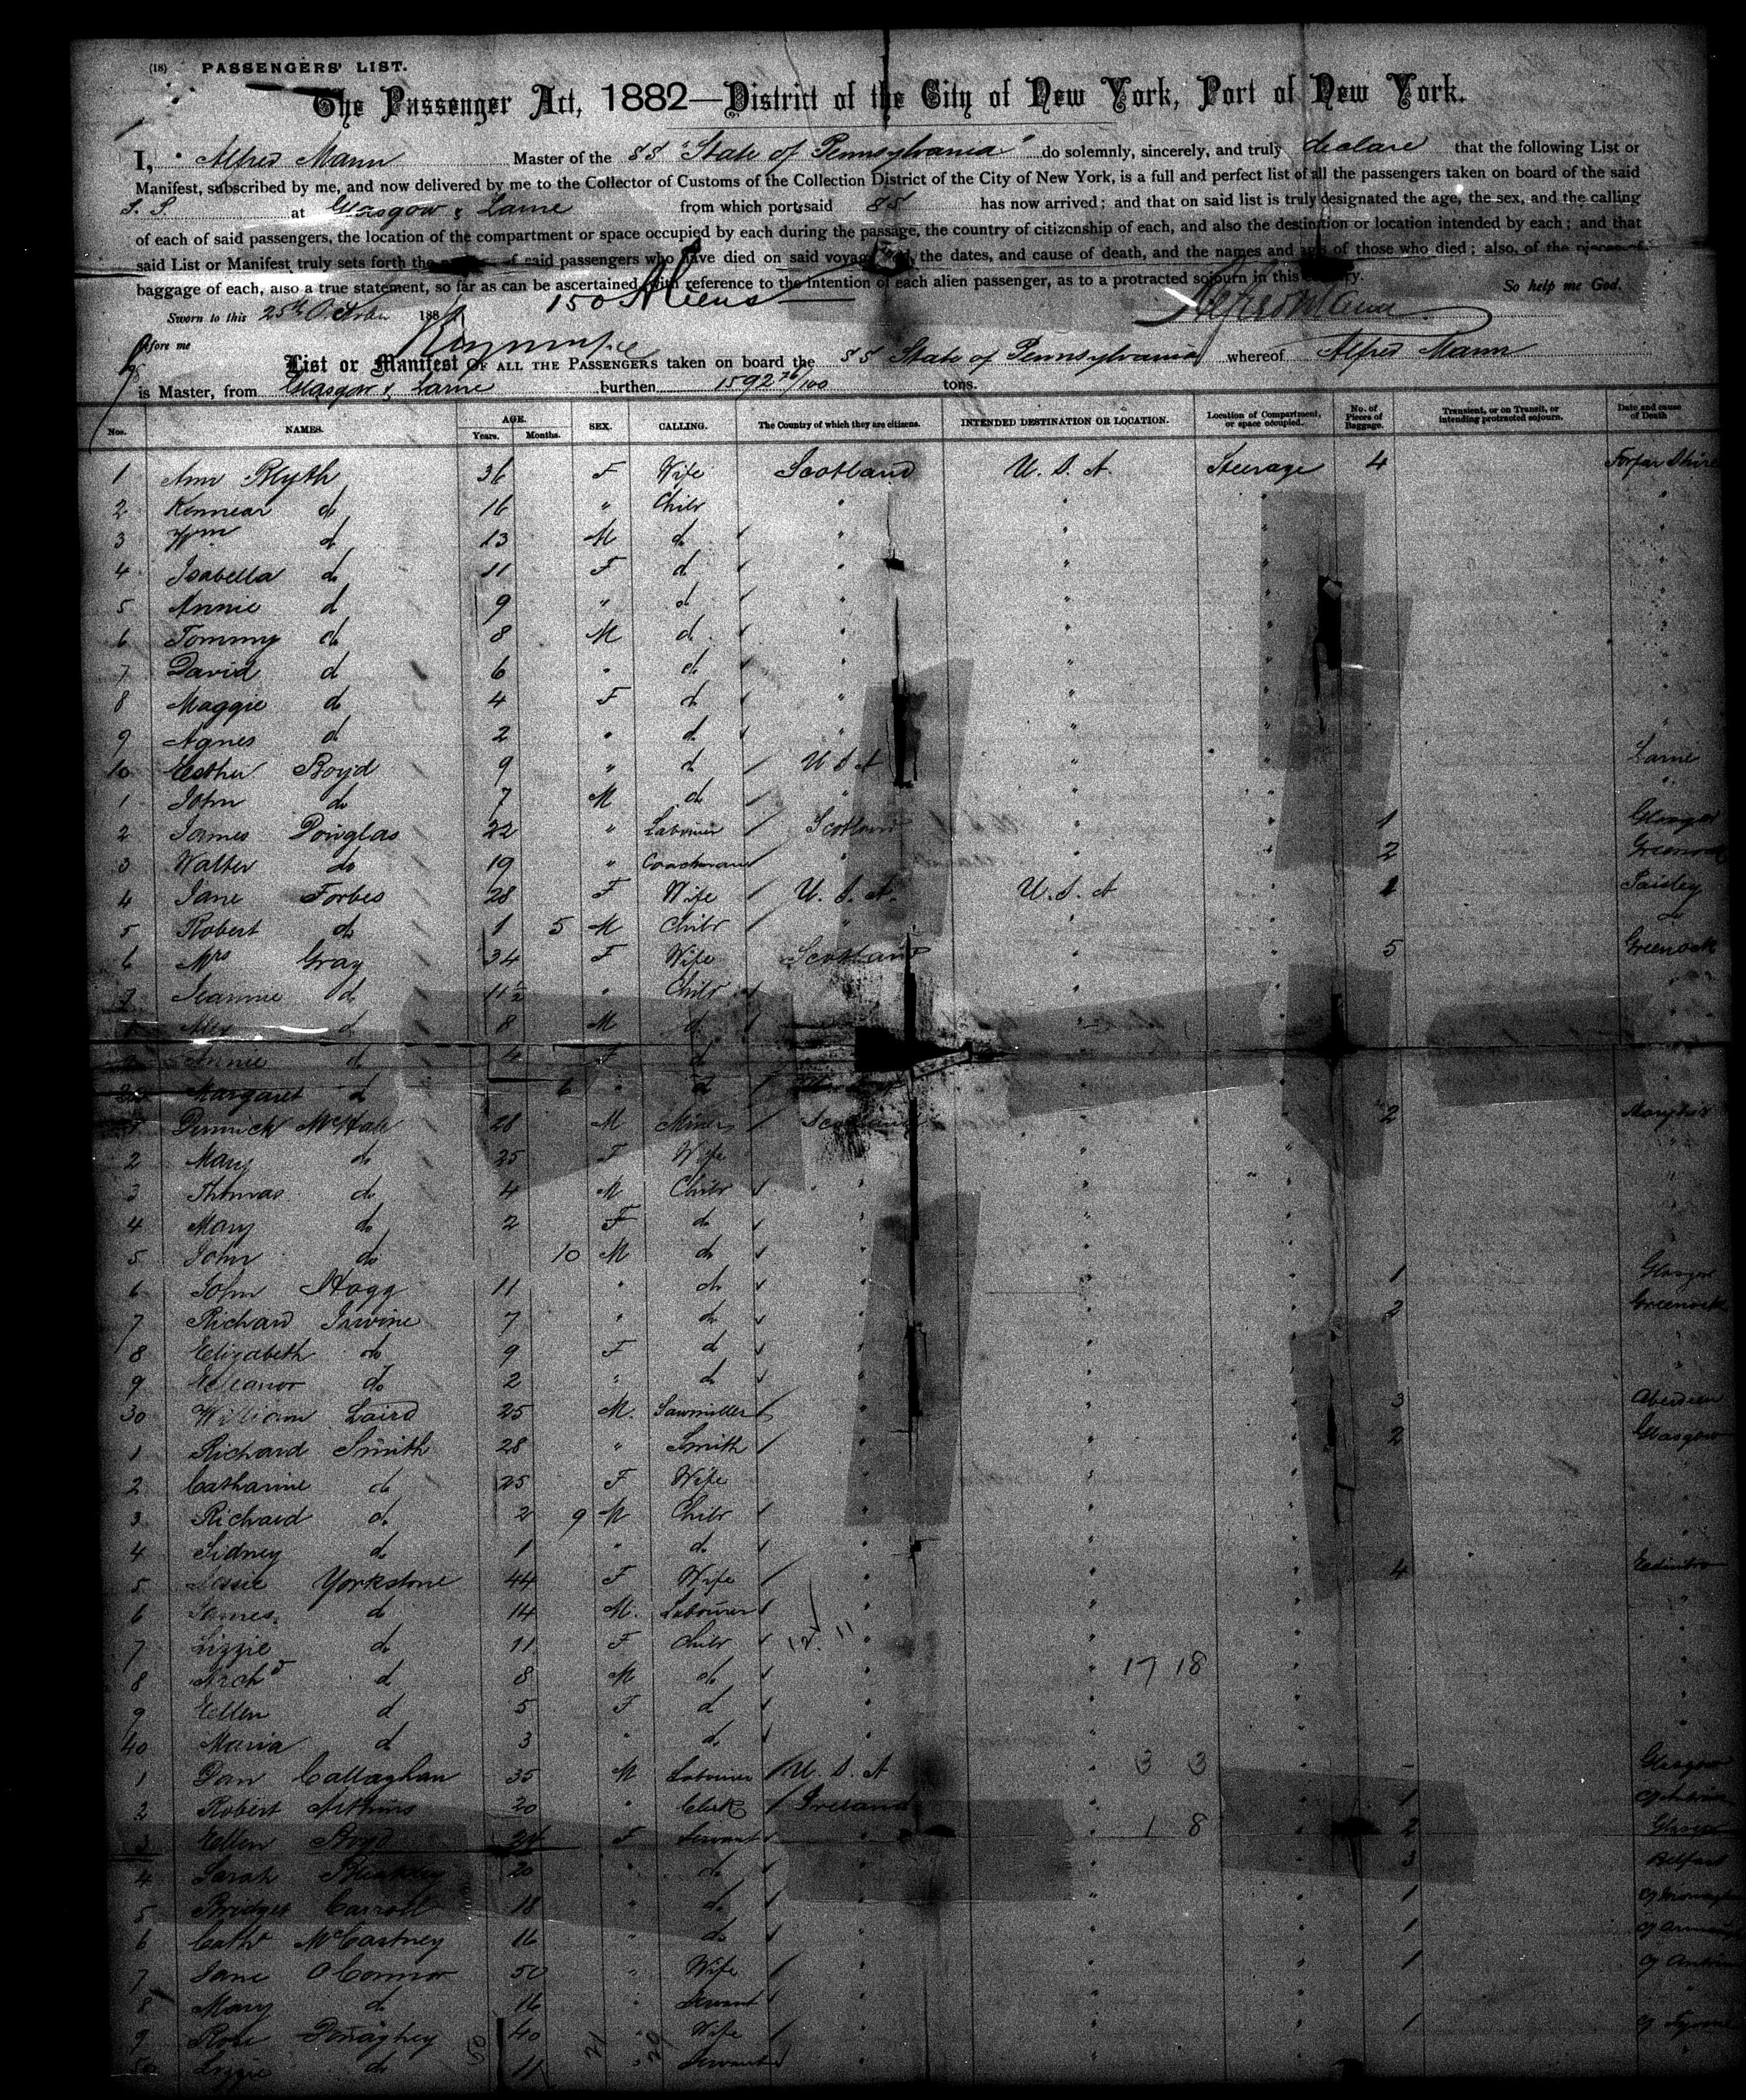 (18) PASSENGERS' LIST.
The Passenger Act, 1882—District of the City of New York, Port of New York.
I, Alfred Mann Master of the SS "State of Pennsylvania" do solemnly, sincerely, and truly declare that the following List or
Manifest, subscribed by me, and now delivered by me to the Collector of Customs of the Collection District of the City of New York, is a full and perfect list of all the passengers taken on board of the said
S. S. at Glasgow & Larne from which port said SS has now arrived; and that on said list is truly designated the age, the sex, and the calling
of each of said passengers, the location of the compartment or space occupied by each during the passage, the country of citizenship of each, and also the destination or location intended by each; and that
said List or Manifest truly sets forth the of said passengers who have died on said voyage the dates, and cause of death, and the names and ages of those who died; also, of the
baggage of each, also a true statement, so far as can be ascertained, with reference to the intention of each alien passenger, as to a protracted sojourn in this country. So help me God.
150 Aliens
Sworn to this 25th October 188 Alfred Mann
Before me
List or Manifest OF ALL THE PASSENGERS taken on board the SS State of Pennsylvania whereof Alfred Mann
is Master, from Glasgow & Larne burthen 1592 76/100 tons.
Nos. NAMES. AGE. Years. Months. SEX. CALLING. The Country of which they are citizens. INTENDED DESTINATION OR LOCATION. Location of Compartment, or space occupied. No. of Pieces of Baggage. Transient, or on Transit, or intending protracted sojourn. Date and cause of Death
1 Ann Blyth 36 F Wife Scotland U. S. A. Steerage 4 Forfar Shire
2 Kennear do 16 " Child " " " "
3 Wm do 13 M do " " " "
4 Isabella do 11 F do " " " "
5 Annie do 9 " do " " " "
6 Tommy do 8 M do " " " "
7 David do 6 " do " " " "
8 Maggie do 4 F do " " " "
9 Agnes do 2 " do " " " "
10 Esther Boyd 9 " do U S A " " Larne
1 John do 7 M do " " " "
2 James Douglas 22 " Labourer Scotland " " 1 Glasgow
3 Walter do 19 " Coachman " " " 2 Greenock
4 Jane Forbes 28 F Wife U. S. A. U. S. A " 1 Paisley
5 Robert do 1 5 M Child " " " do
6 Mrs Gray 34 F Wife Scotland " " 5 Greenock
7 Jeannie do 11½ " Child " " "
8 Alex do 8 M do "
9 Annie do 4 F do
20 Margaret do 6 " do
1 McHale 28 M Miner Scotland " " 2
2 Mary do 25 F Wife " " "
3 Thomas do 4 M Child " " " "
4 Mary do 2 F do " " " "
5 John do 10 M do " " " "
6 John Hogg 11 " do " " " 1 Glasgow
7 Richard Irvine 7 " do " " " 2 Greenock
8 Elizabeth do 9 F do " " " "
9 Eleanor do 2 " do " " " "
30 William Laird 25 M. Sawmiller " " " 3 Aberdeen
1 Richard Smith 28 " Smith " " " 2 Glasgow
2 Catharine do 25 F Wife " " " "
3 Richard do 2 9 M Child " " " "
4 Sidney do 1 " do " " " "
5 Yorkstone 44 F Wife " " " 4 Edinbro
6 James do 14 M. Labourer " " " "
7 Lizzie do 11 F Child 12 11 " " " "
8 Archd do 8 M do " " 17 18 " "
9 Ellen do 5 F do " " " "
40 Maria do 3 " do " " " "
1 Dan Callaghan 35 M Labourer U. S. A " 3 3 " – Glasgow
2 Robert Arthurs 20 " Clerk Ireland " " 1 Co Antrim
3 Ellen Boyd 24 F Servant " " 1 8 " 2 Glasgow
4 Sarah 20 " do " " " 3 Belfast
5 Bridget Carroll 18 " do " " " 1 Co Monaghan
6 Cathe McCartney 16 " do " " " 1 Co Armagh
7 Jane O'Connor 50 " Wife " " " 1 Co Antrim
8 Mary do 16 " Servant " " " "
9 Rose Donaghey 40 " Wife " " " 1 Co Tyrone
50 Lizzie do 11 " Servant " " " "